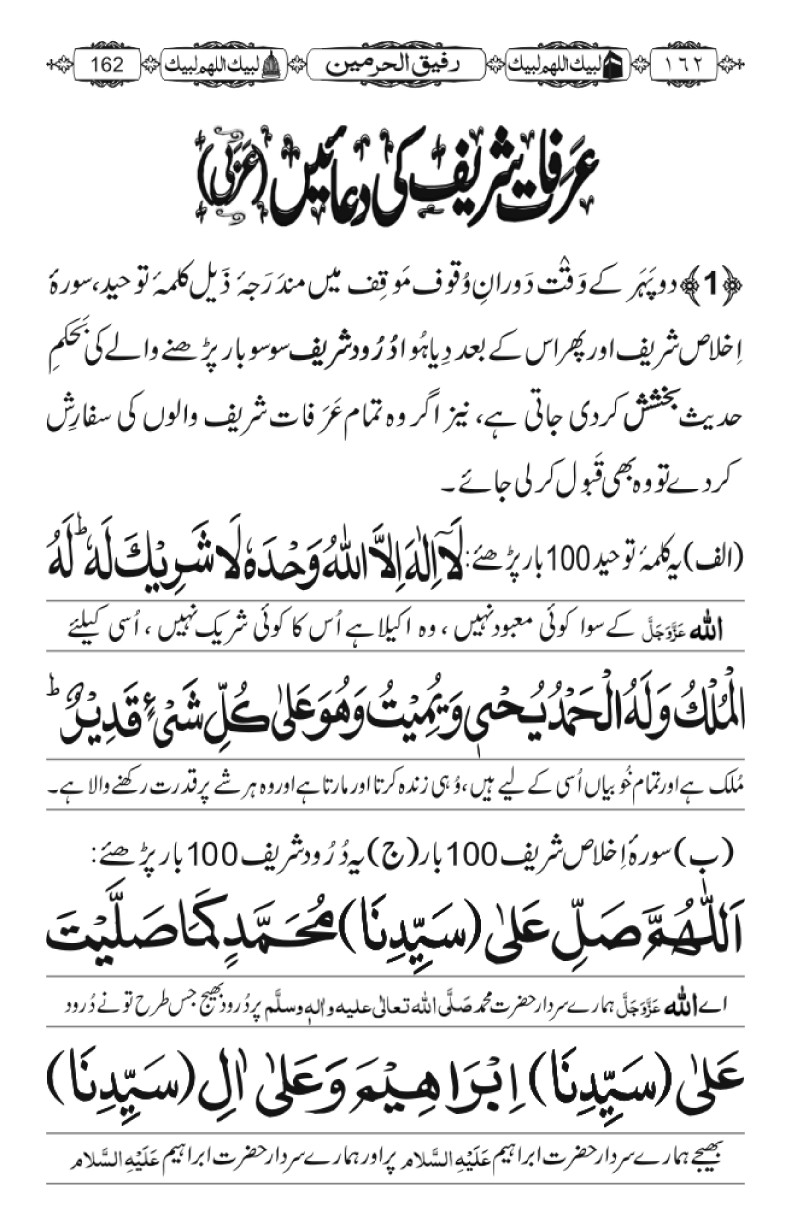 ١٦٢ لبیك اللھم لبیك رفیق الحرمین لبیك اللھم لبیك 162
عَرَفات شریف کی دعائیں (عَرَبی)
﴿1﴾ دوپَہَر کے وَقْت دَورانِ وُقوف مَوقِف میں مندَرَجۂ ذَیل کلمۂ توحید، سورۂ
اِخلاص شریف اور پھر اس کے بعد دِیا ہُوا دُرُود شریف سو سو بار پڑھنے والے کی بَحکمِ
حدیث بخشش کردی جاتی ہے، نیز اگر وہ تمام عَرَفات شریف والوں کی سفارِش
کردے تو وہ بھی قَبول کرلی جائے ۔
(الف) یہ کلمۂ توحید 100 بار پڑھئے: لَآ اِلٰهَ اِلَّا اللّٰهُ وَحْدَهٗ لَا شَرِیْكَ لَهٗ ؕ لَهُ
اللہ عَزَّوَجَلَّ کے سوا کوئی معبود نہیں ، وہ اکیلا ہے اُس کا کوئی شریک نہیں ، اُسی کیلئے
الْمُلْكُ وَلَهُ الْحَمْدُ یُحْیٖ وَیُمِیْتُ وَهُوَ عَلٰی كُلِّ شَیْءٍ قَدِیْرٌ ؕ
مُلک ہے اور تمام خُوبیاں اُسی کے لیے ہیں، وُہی زندہ کرتا اور مارتا ہے اور وہ ہر شے پر قدرت رکھنے والا ہے۔
(ب) سورۂ اِخلاص شریف 100 بار (ج) یہ دُرُود شریف 100 بار پڑھئے:
اَللّٰهُمَّ صَلِّ عَلٰی (سَیِّدِنَا) مُحَمَّدٍ كَمَا صَلَّیْتَ
اے اللہ عَزَّوَجَلَّ ہمارے سردار حضرت محمد صَلَّی اللہ تعالٰی علیه واٰلهٖ وسلَّم پر دُرود بھیج جس طرح تو نے دُرود
عَلٰی (سَیِّدِنَا) اِبْرَاهِیْمَ وَعَلٰی اٰلِ (سَیِّدِنَا)
بھیجے ہمارے سردار حضرت ابراہیم عَلَیْهِ السَّلام پر اور ہمارے سردار حضرت ابراہیم عَلَیْهِ السَّلام